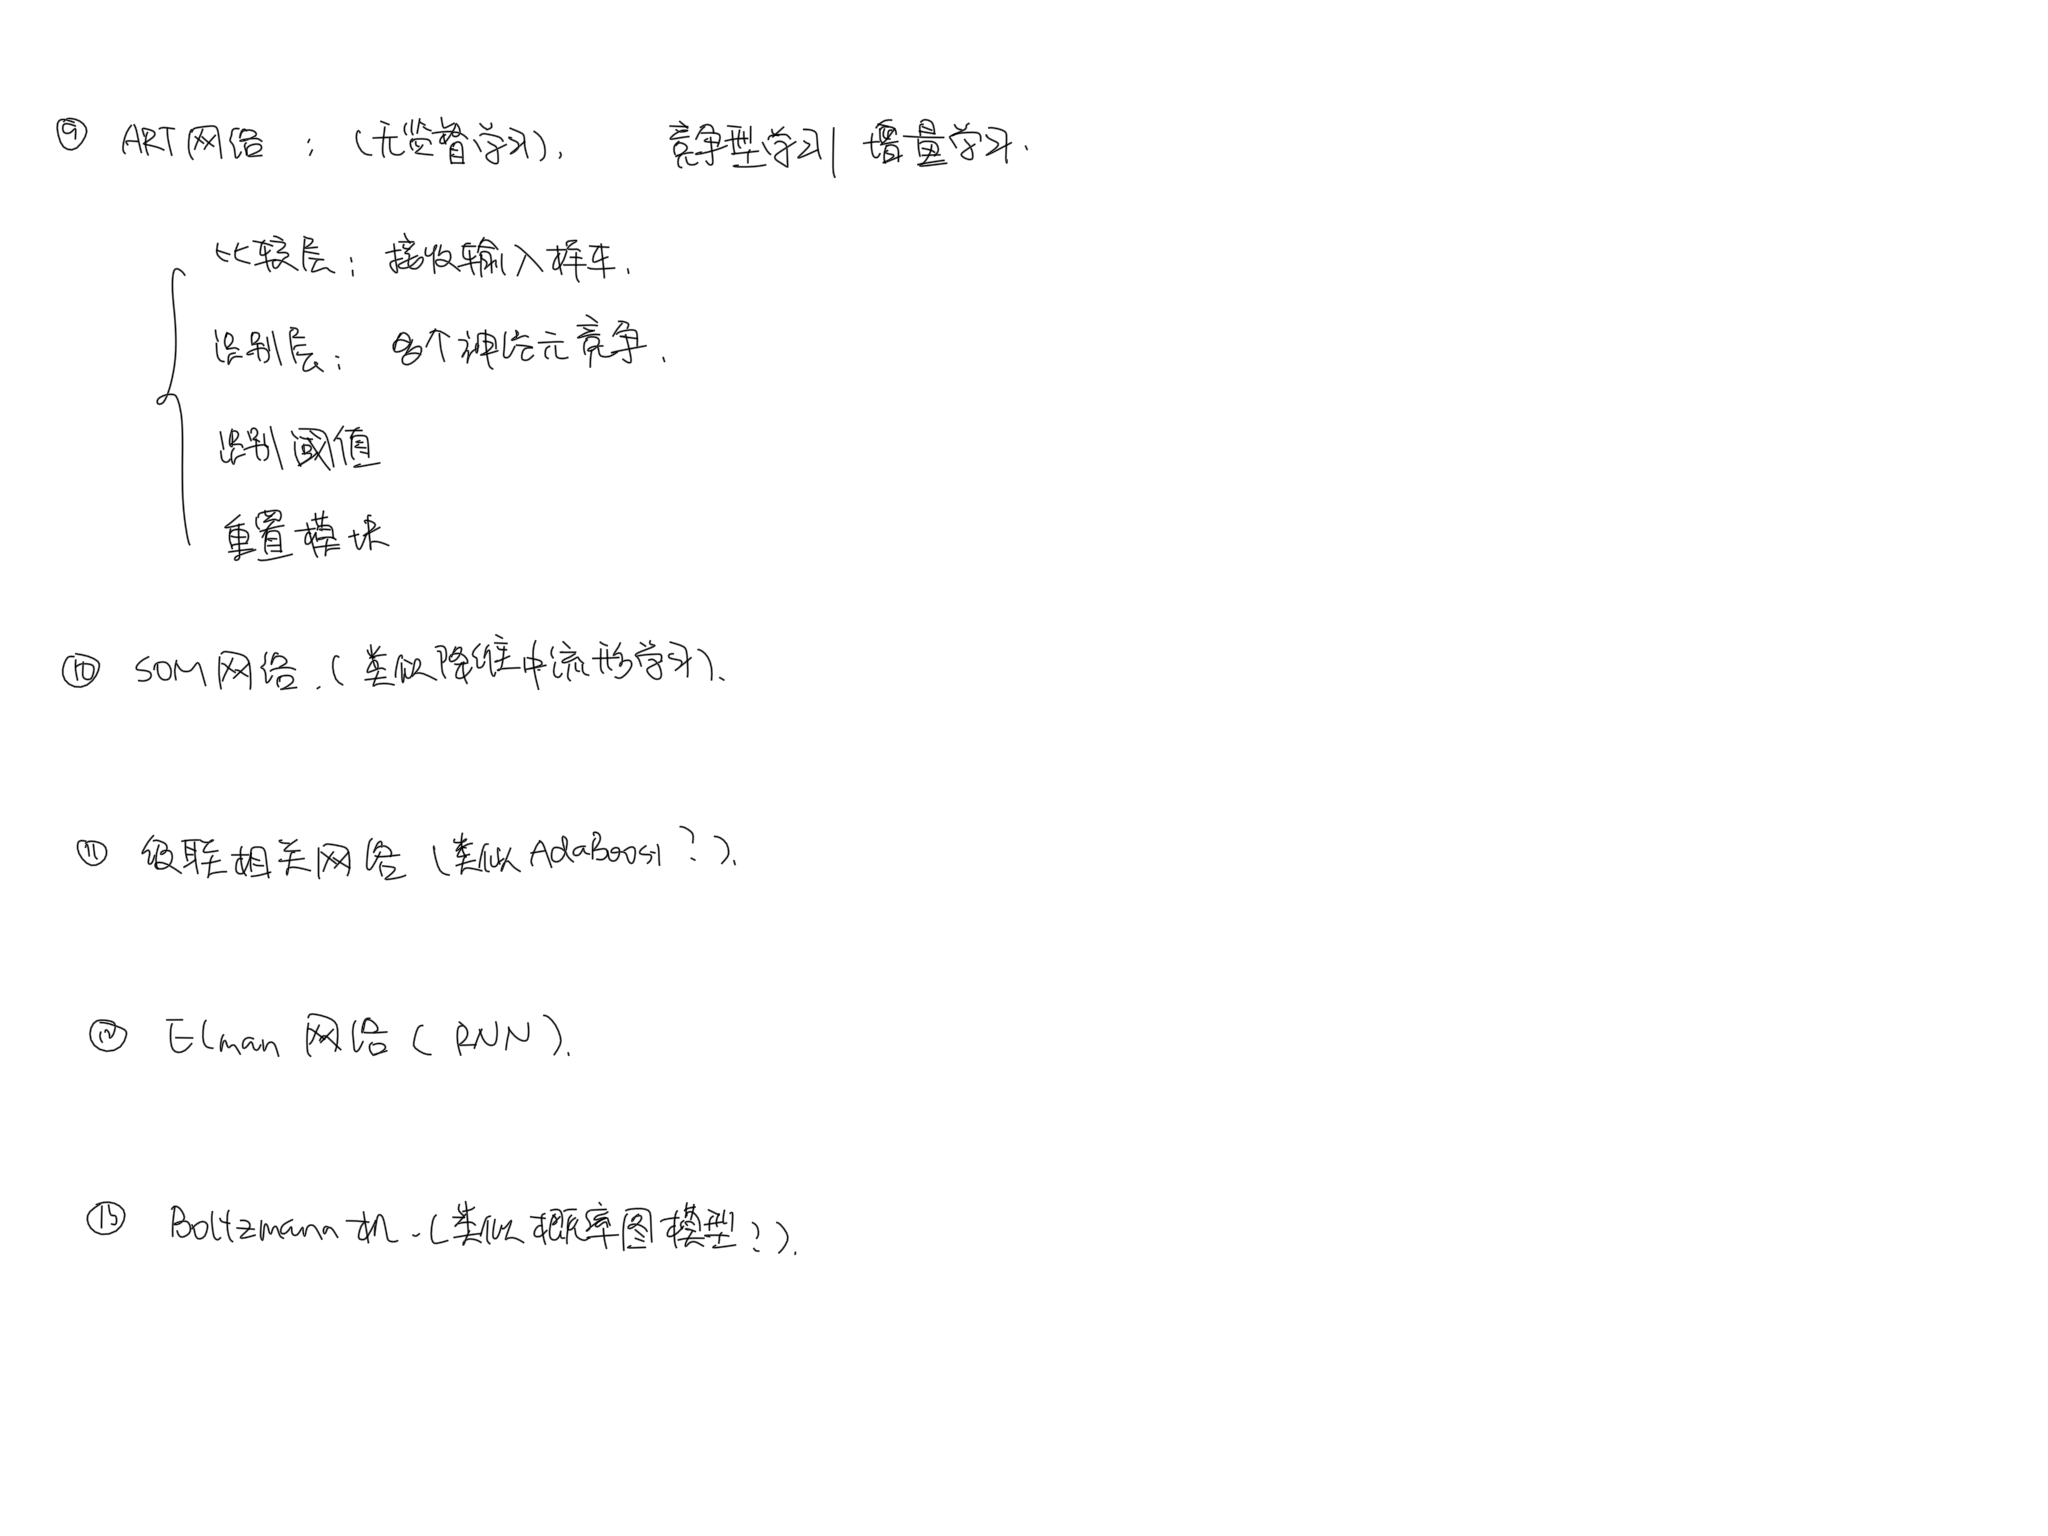 ⑨ ART网络：（无监督学习）. 竞争型学习| 增量学习.
比较层：接收输入样本.
识别层：各个神经元竞争.
识别阈值
重置模块
⑩ SOM网络.（类似降维中流形学习）.
⑪ 级联相关网络（类似AdaBoost？）.
⑫ Elman 网络（RNN）.
⑬ Boltzmann机.（类似概率图模型？）.